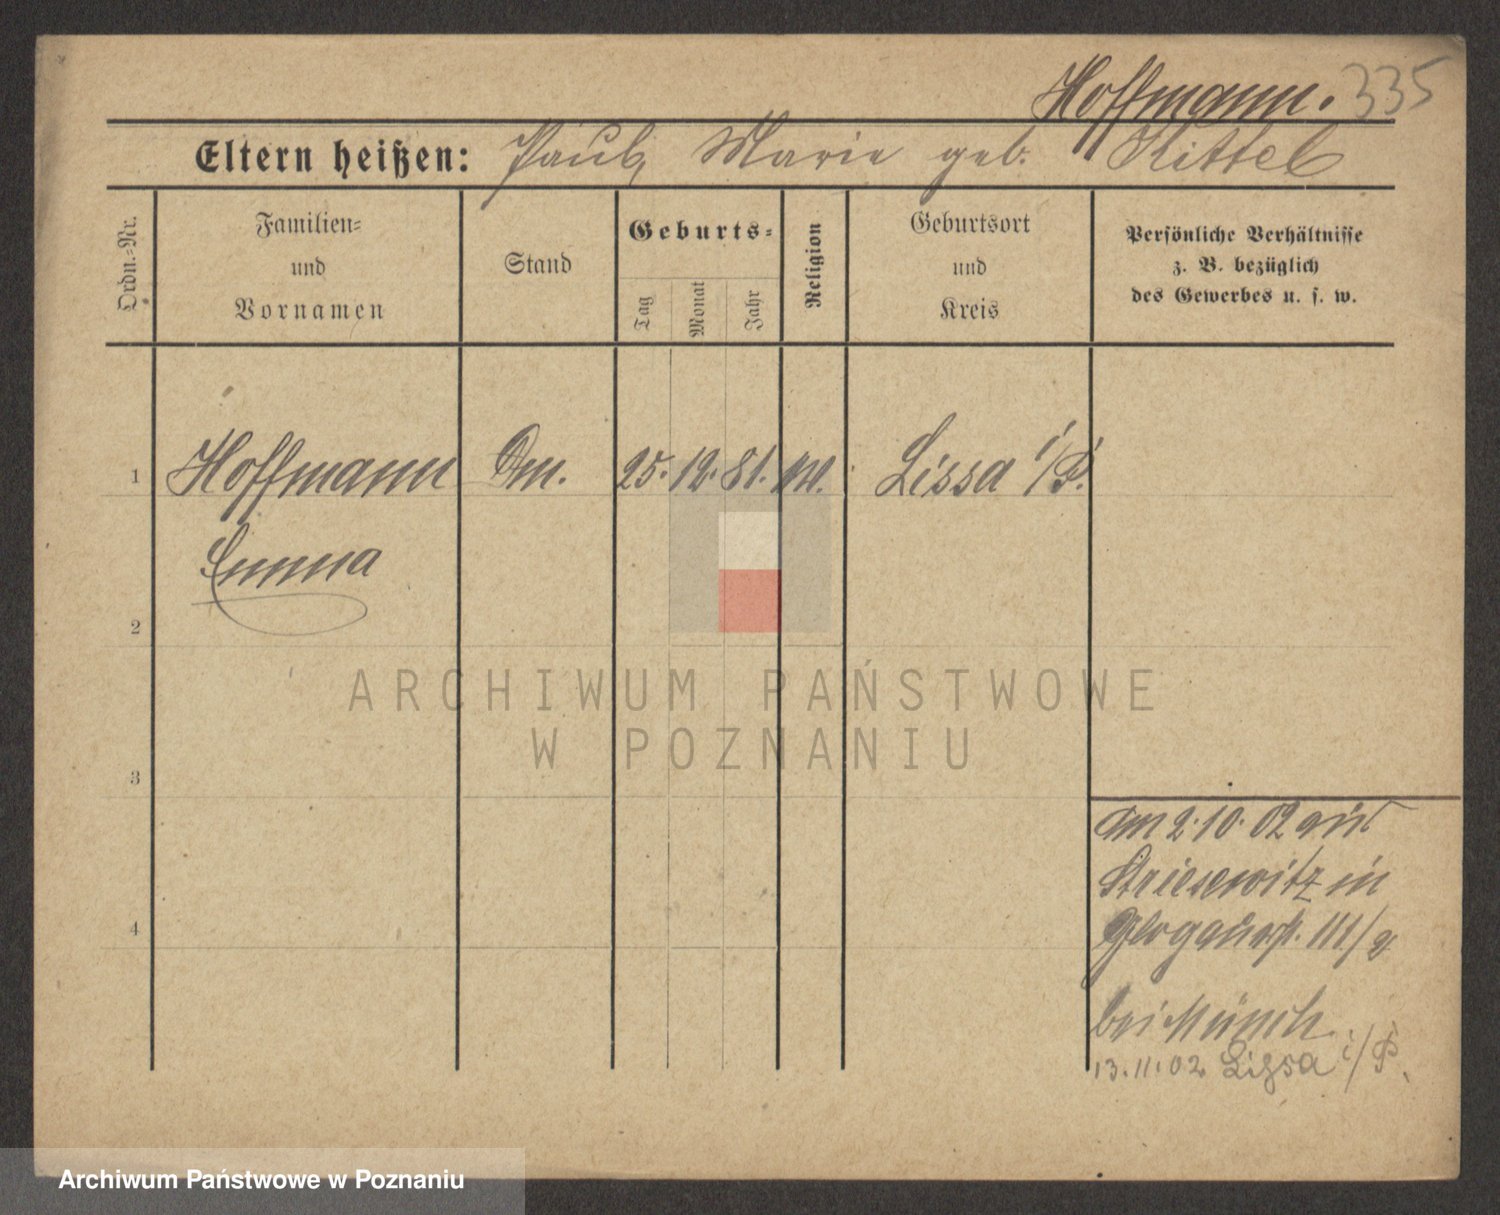 Hoffmann. 335
Eltern heißen: Paul, Marie geb. Kittel
Ordn.-Nr.
Familien-
und
Vornamen
Stand
Geburts-
Tag
Monat
Jahr
Religion
Geburtsort
und
Kreis
Persönliche Verhältnisse
z. B. bezüglich
des Gewerbes u. s. w.
1 Hoffmann 25. 12. 81. Lissa i/P.
Emma
2
3
4
am 2.10.02 aus
Striesewitz in
Glogauerst. 111/
bei Münch
13.11.02 Lissa i/P.
ARCHIWUM PAŃSTWOWE
W POZNANIU
Archiwum Państwowe w Poznaniu